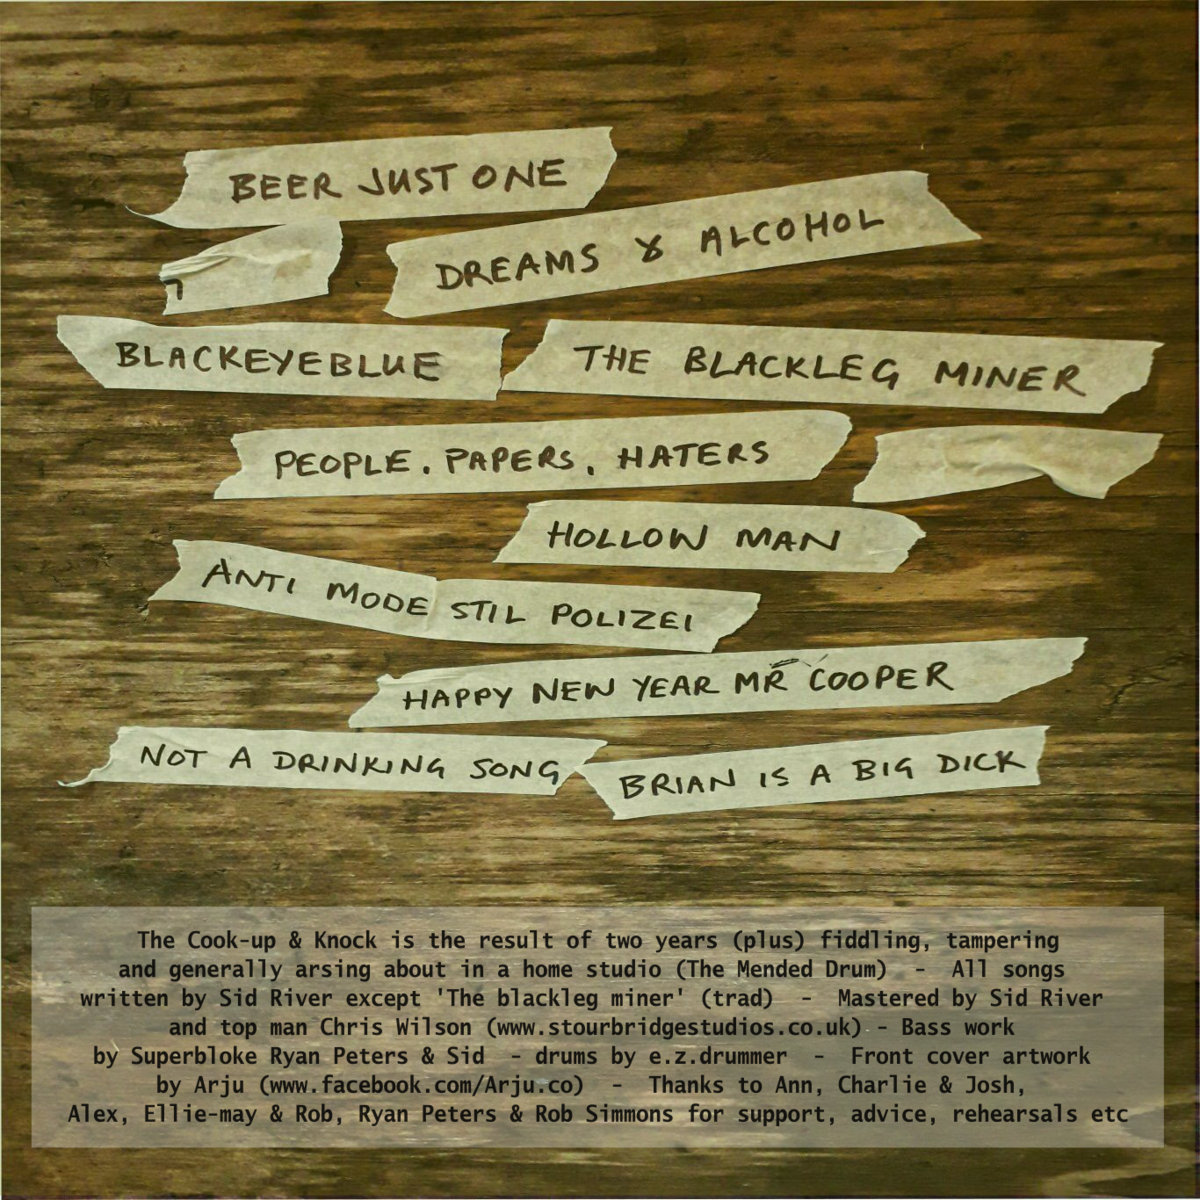 BEER JUST ONE
DREAMS & ALCOHOL
BLACKEYEBLUE
THE BLACKLEG MINER
PEOPLE. PAPERS. HATERS
HOLLOW MAN
ANTI MODE STIL POLIZEI
HAPPY NEW YEAR MR COOPER
NOT A DRINKING SONG
BRIAN IS A BIG DICK
The Cook-up & Knock is the result of two years (plus) fiddling, tampering
and generally arsing about in a home studio (The Mended Drum) - All songs
written by Sid River except 'The blackleg miner' (trad) - Mastered by Sid River
and top man Chris Wilson (www.stourbridgestudios.co.uk) - Bass work
by Superbloke Ryan Peters & Sid - drums by e.z.drummer - Front cover artwork
by Arju (www.facebook.com/Arju.co) - Thanks to Ann, Charlie & Josh,
Alex, Ellie-may & Rob, Ryan Peters & Rob Simmons for support, advice, rehearsals etc